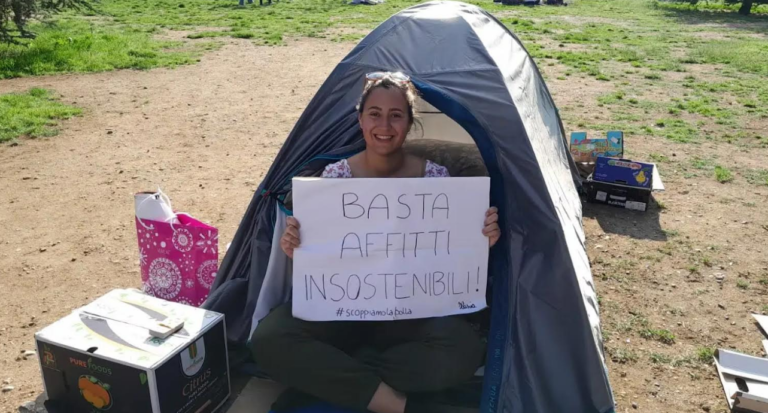 BASTA
AFFITTI
INSOSTENIBILI!
#scoppiamolabolla
PUREFOODS
CITRUS